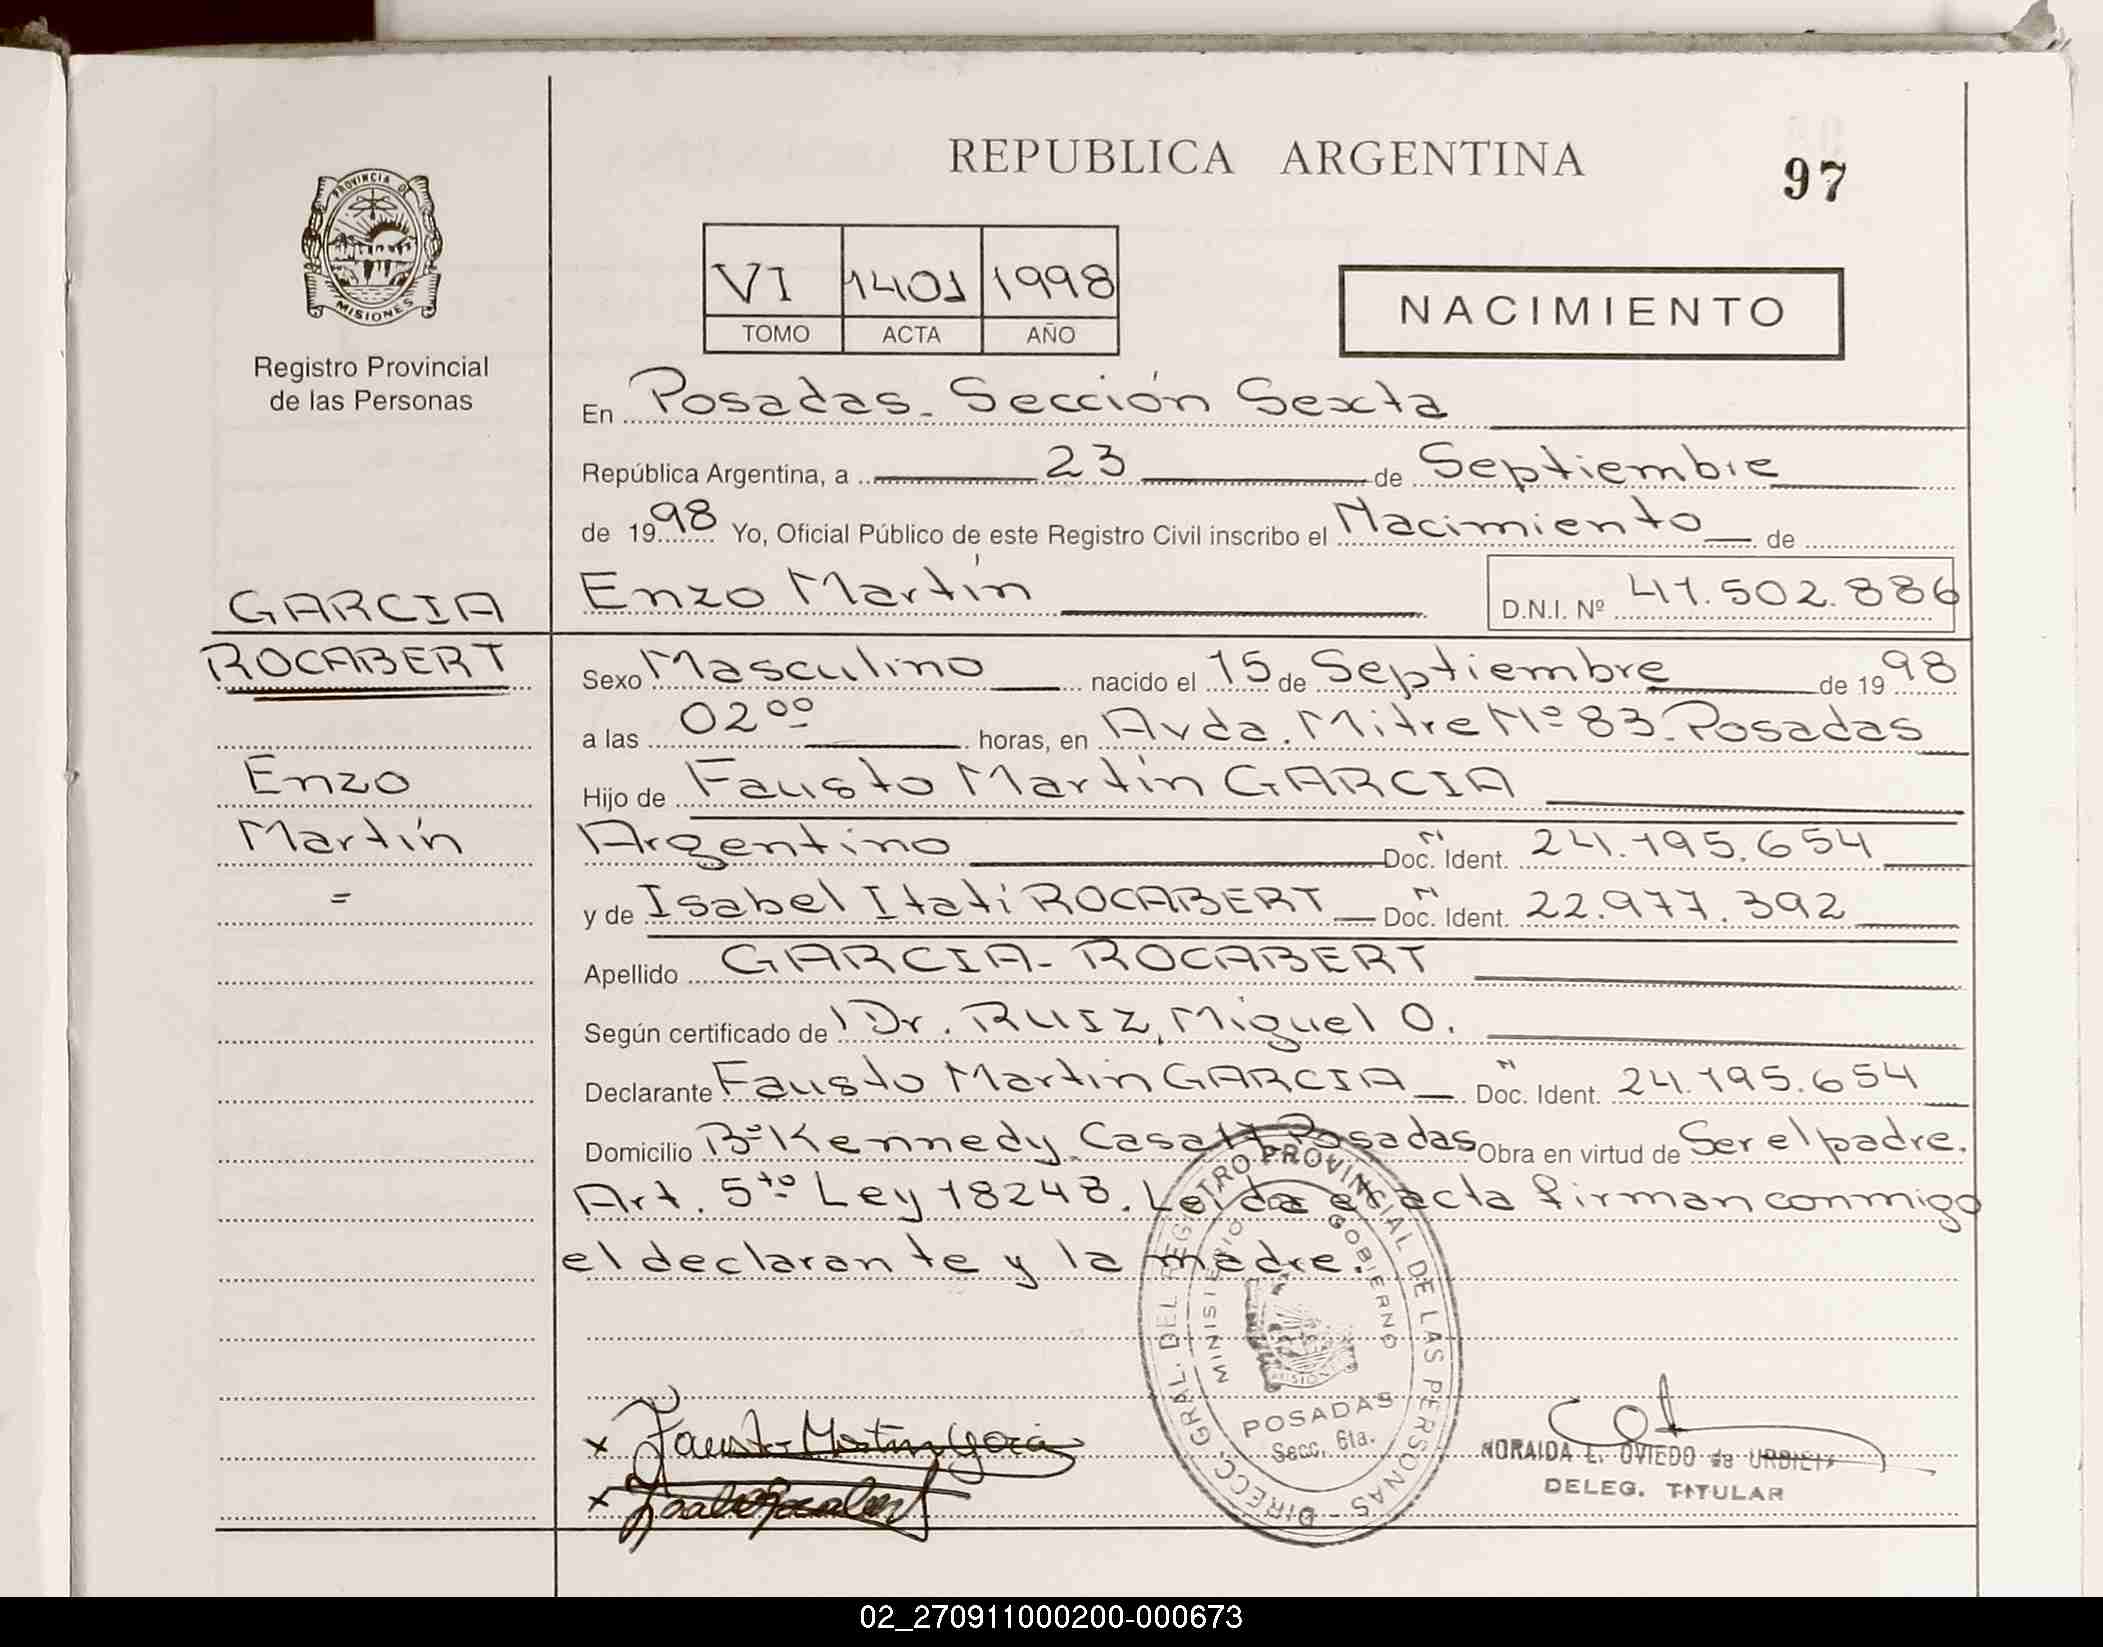 REPUBLICA ARGENTINA
97
PROVINCIA DE
MISIONES
Registro Provincial
de las Personas
VI 1401 1998
TOMO ACTA AÑO
NACIMIENTO
En Posadas - Sección Sexta
República Argentina, a 23 de Septiembre
de 1998 Yo, Oficial Público de este Registro Civil inscribo el Nacimiento de
GARCIA
Enzo Martín
D.N.I. Nº 41.502.886
ROCABERT
Sexo Masculino nacido el 15 de Septiembre de 1998
a las 02ºº horas, en Avda. Mitre Nº 83 - Posadas
Enzo
Hijo de Fausto Martín GARCIA
Martín
Argentino Doc. Ident. 24.195.654
=
y de Isabel Itatí ROCABERT Doc. Ident. 22.977.392
Apellido GARCIA - ROCABERT
Según certificado de Dr. RUIZ, Miguel O.
Declarante Fausto Martin GARCIA Doc. Ident. 24.195.654
Domicilio Bº Kennedy. Casa 17 Posadas Obra en virtud de Ser el padre.
Art. 5to Ley 18248. Leida el acta firman conmigo
el declarante y la madre.
DIRECC. GRAL. DEL REGISTRO PROVINCIAL DE LAS PERSONAS -
MINISTERIO GOBIERNO
MISIONES
POSADAS
Secc. 6ta.
x Fausto Martin Garcia
x
NORAIDA L. OVIEDO de URBIETA
DELEG. TITULAR
02_270911000200-000673